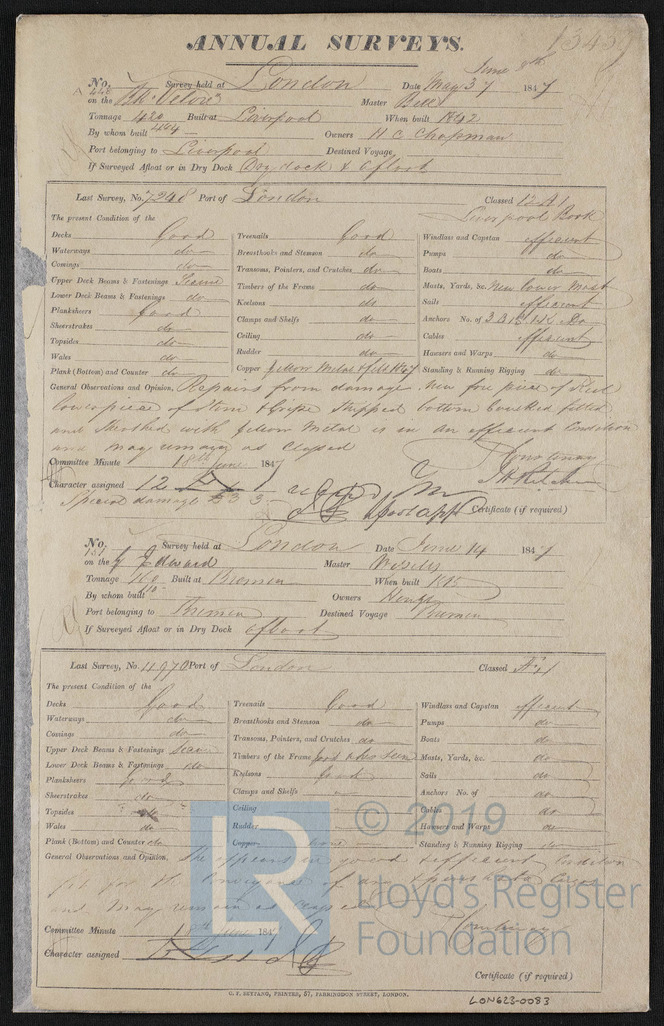 ANNUAL SURVEYS.
13437
June 8th
No. 448 Survey held at London Date May 37 1847
on the Master Bell
Tonnage 420 Built at Liverpool When built 1842
By whom built 464 Owners H C Chapman
Port belonging to Liverpool Destined Voyage
If Surveyed Afloat or in Dry Dock Dry dock & afloat
Last Survey, No. 7248 Port of London Classed 12 A1
Liverpool Book
The present Condition of the
Decks Good Treenails Good Windlass and Capstan efficient
Waterways do Breasthooks and Stemson do Pumps do
Comings do Transoms, Pointers, and Crutches do Boats do
Upper Deck Beams & Fastenings Timbers of the Frame do Masts, Yards, &c. New lower Mast
Lower Deck Beams & Fastenings do Keelsons do Sails efficient
Planksheers good Clamps and Shelfs do Anchors No. of
Sheerstrakes do Ceiling do Cables efficient
Topsides do Rudder do Hawsers and Warps do
Wales do Copper yellow Metal & felt 1847 Standing & Running Rigging do
Plank (Bottom) and Counter do
General Observations and Opinion, Repairs from damage. New fore piece of Keel
lower piece of Stem & Gripe Stripped bottom caulked felted
and sheathed with yellow Metal is in an efficient Condition
and may remain as Classed
Committee Minute 18th June 1847
Character assigned 12 A1
Special damage £3 3 Certificate (if required)
No. 151 Survey held at London Date June 14 1847
on the G Edward Master
Tonnage 160 Built at Bremen When built
By whom built 110 Owners
Port belonging to Destined Voyage Bremen
If Surveyed Afloat or in Dry Dock afloat
Last Survey, No. 11970 Port of London Classed
The present Condition of the
Decks Good Treenails Good Windlass and Capstan efficient
Waterways do Breasthooks and Stemson do Pumps do
Comings do Transoms, Pointers, and Crutches do Boats do
Upper Deck Beams & Fastenings Timbers of the Frame good as seen Masts, Yards, &c. do
Lower Deck Beams & Fastenings do Keelsons good Sails do
Planksheers good Clamps and Shelfs Anchors No. of do
Sheerstrakes do Ceiling Cables do
Topsides do Rudder Hawsers and Warps do
Wales do Copper none Standing & Running Rigging do
Plank (Bottom) and Counter do
General Observations and Opinion, She appears in good & efficient Condition
fit for the Conveyance of dry & perishable Cargo
and may remain as Classed
Committee Minute 18th June 1847
Character assigned
Certificate (if required)
G. F. SEYFANG, PRINTER, 57, FARRINGDON STREET, LONDON.
LON623-0083
LR © 2019
Lloyd's Register
Foundation